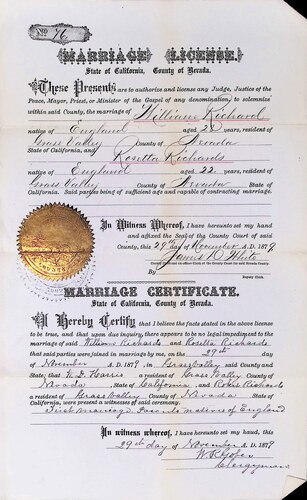 No. 76
MARRIAGE LICENSE.
State of California, County of Nevada.
These Presents are to authorize and license any Judge, Justice of the
Peace, Mayor, Priest, or Minister of the Gospel of any denomination, to solemnize
within said County, the marriage of William Richard
native of England aged 25 years, resident of
Grass Valley County of Nevada
State of California, and Rosetta Richards
native of England aged 22 years, resident of
Grass Valley County of Nevada State of
California. Said parties being of sufficient age and capable of contracting marriage.
In Witness Whereof, I have hereunto set my hand
and affixed the Seal of the County Court of said
County, this 29th day of November A.D. 1879
James D White
By
Deputy Clerk.
MARRIAGE CERTIFICATE.
State of California, County of Nevada.
I Hereby Certify that I believe the facts stated in the above license
to be true, and that upon due inquiry, there appears to be no legal impediment to the
marriage of said William Richards and Rosetta Richards
that said parties were joined in marriage by me, on the 29th day
of November A.D. 1879, in Grass Valley said County and
State; that W. D. Harris a resident of Grass Valley County of
Nevada State of California, and Richards
a resident of Grass Valley County of Nevada State of
California, were present as witnesses of said ceremony.
First marriage natives of England
In witness whereof, I have hereunto set my hand, this
29th day of November A.D. 1879
Clergyman